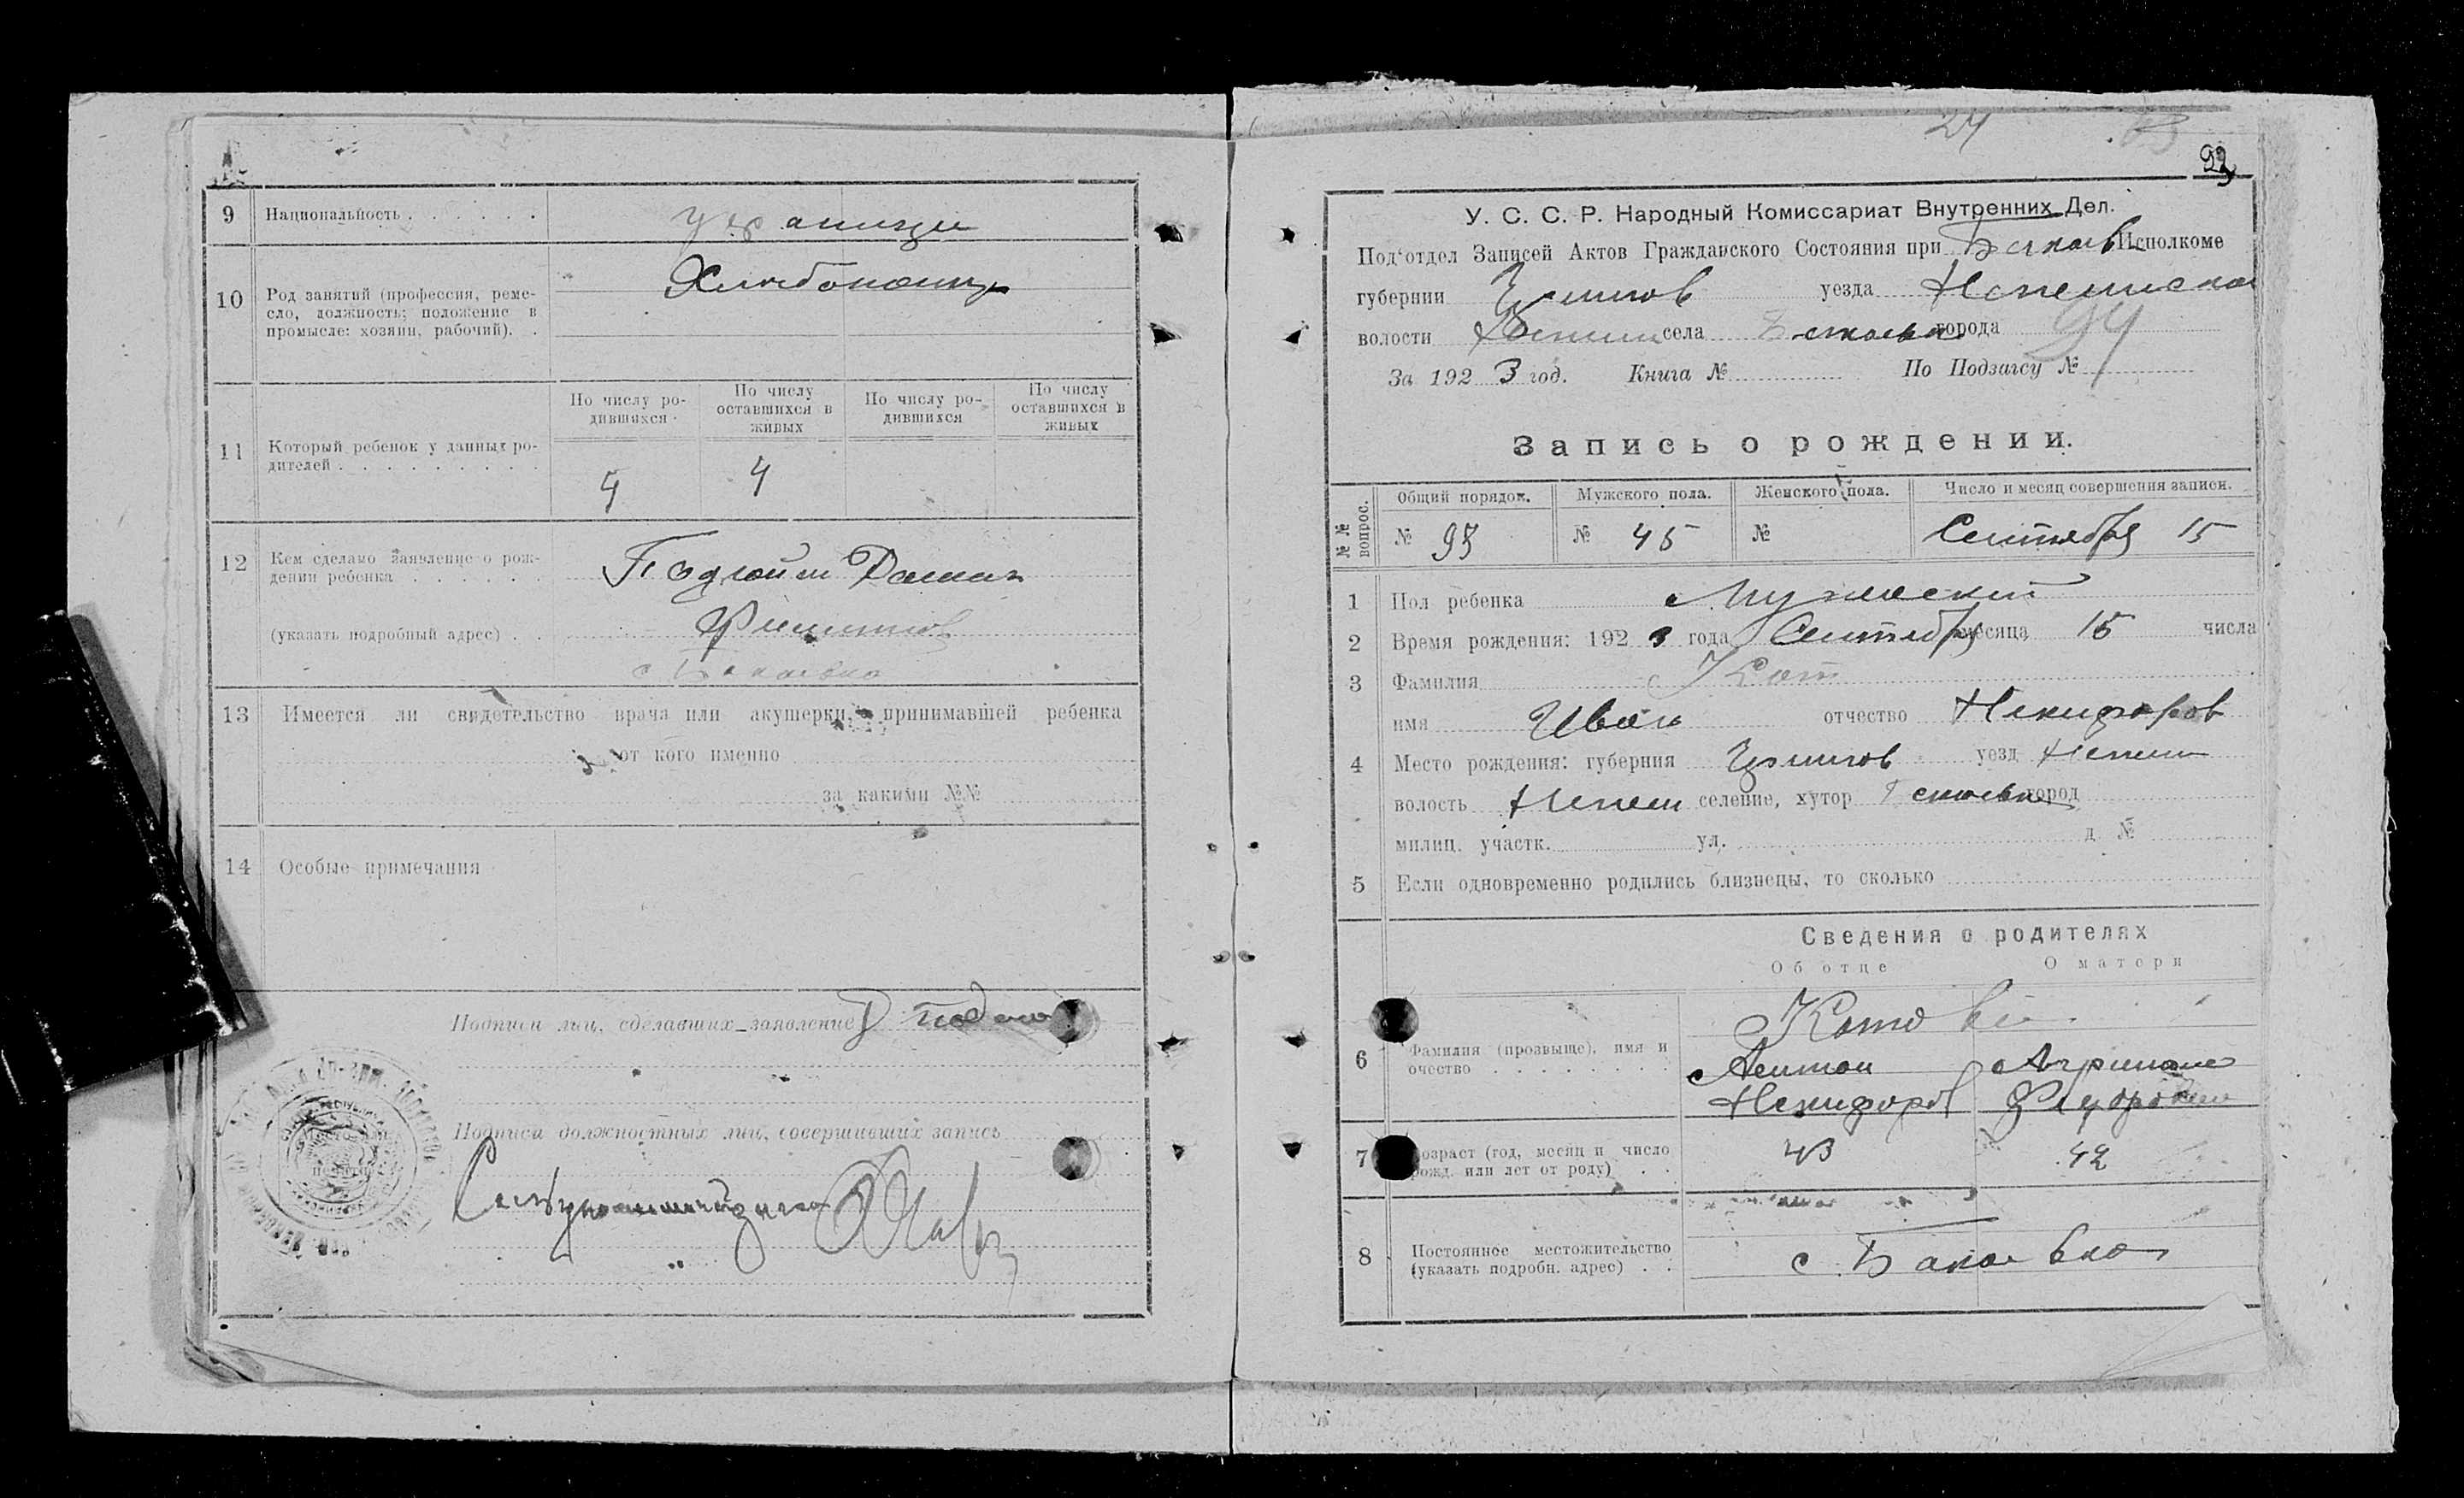 9 Национальность . . . . . . украинцы
10 Род занятий (профессия, реме-
сло, должность; положение в
промысле: хозяин, рабочий). .
Хлебопашцы
По числу ро-
дившихся
По числу
оставшихся в
живых
По числу ро-
дившихся
По числу
оставшихся в
живых
11 Который ребенок у данных ро-
дителей . . . . . . . . .
4 4
12 Кем сделано заявление о рож-
дении ребенка . . . . . .
(указать подробный адрес) . .
с Бакаевка
13 Имеется ли свидетельство врача или акушерки, принимавшей ребенка
от кого именно
за какими №№
14 Особые примечания
Подписи лиц, сделавших заявление
Подписи должностных лиц, совершивших запись
24
93
У. С. С. Р. Народный Комиссариат Внутренних Дел.
Под‘отдел Записей Актов Гражданского Состояния при Бакаев Исполкоме
губернии Чернигов уезда
волости села Бакаевка города
94
За 192 3 год. Книга № По Подзагсу №
Запись о рождении.
№№ вопрос.
Общий порядок. Мужского пола. Женского пола. Число и месяц совершения записи.
№ 95 № 45 № Сентября 15
1 Пол ребенка Мужеский
2 Время рождения: 192 3 года Сентября месяца 15 числа
3 Фамилия Кот
имя Иван отчество Никифоров
4 Место рождения: губерния Чернигов уезд
волость селение, хутор Бакаевка город
милиц. участк. ул. д. №
5 Если одновременно родились близнецы, то сколько
Сведения о родителях
Об отце О матери
6 Фамилия (прозвыще), имя и
очество . . . . . . . .
Котовы
Антон Агрипина
Никифоров Федоровна
7 Возраст (год, месяц и число
рожд. или лет от роду) . .
43 42
8 Постоянное местожительство
(указать подробн. адрес) . .
с. Бакаевка